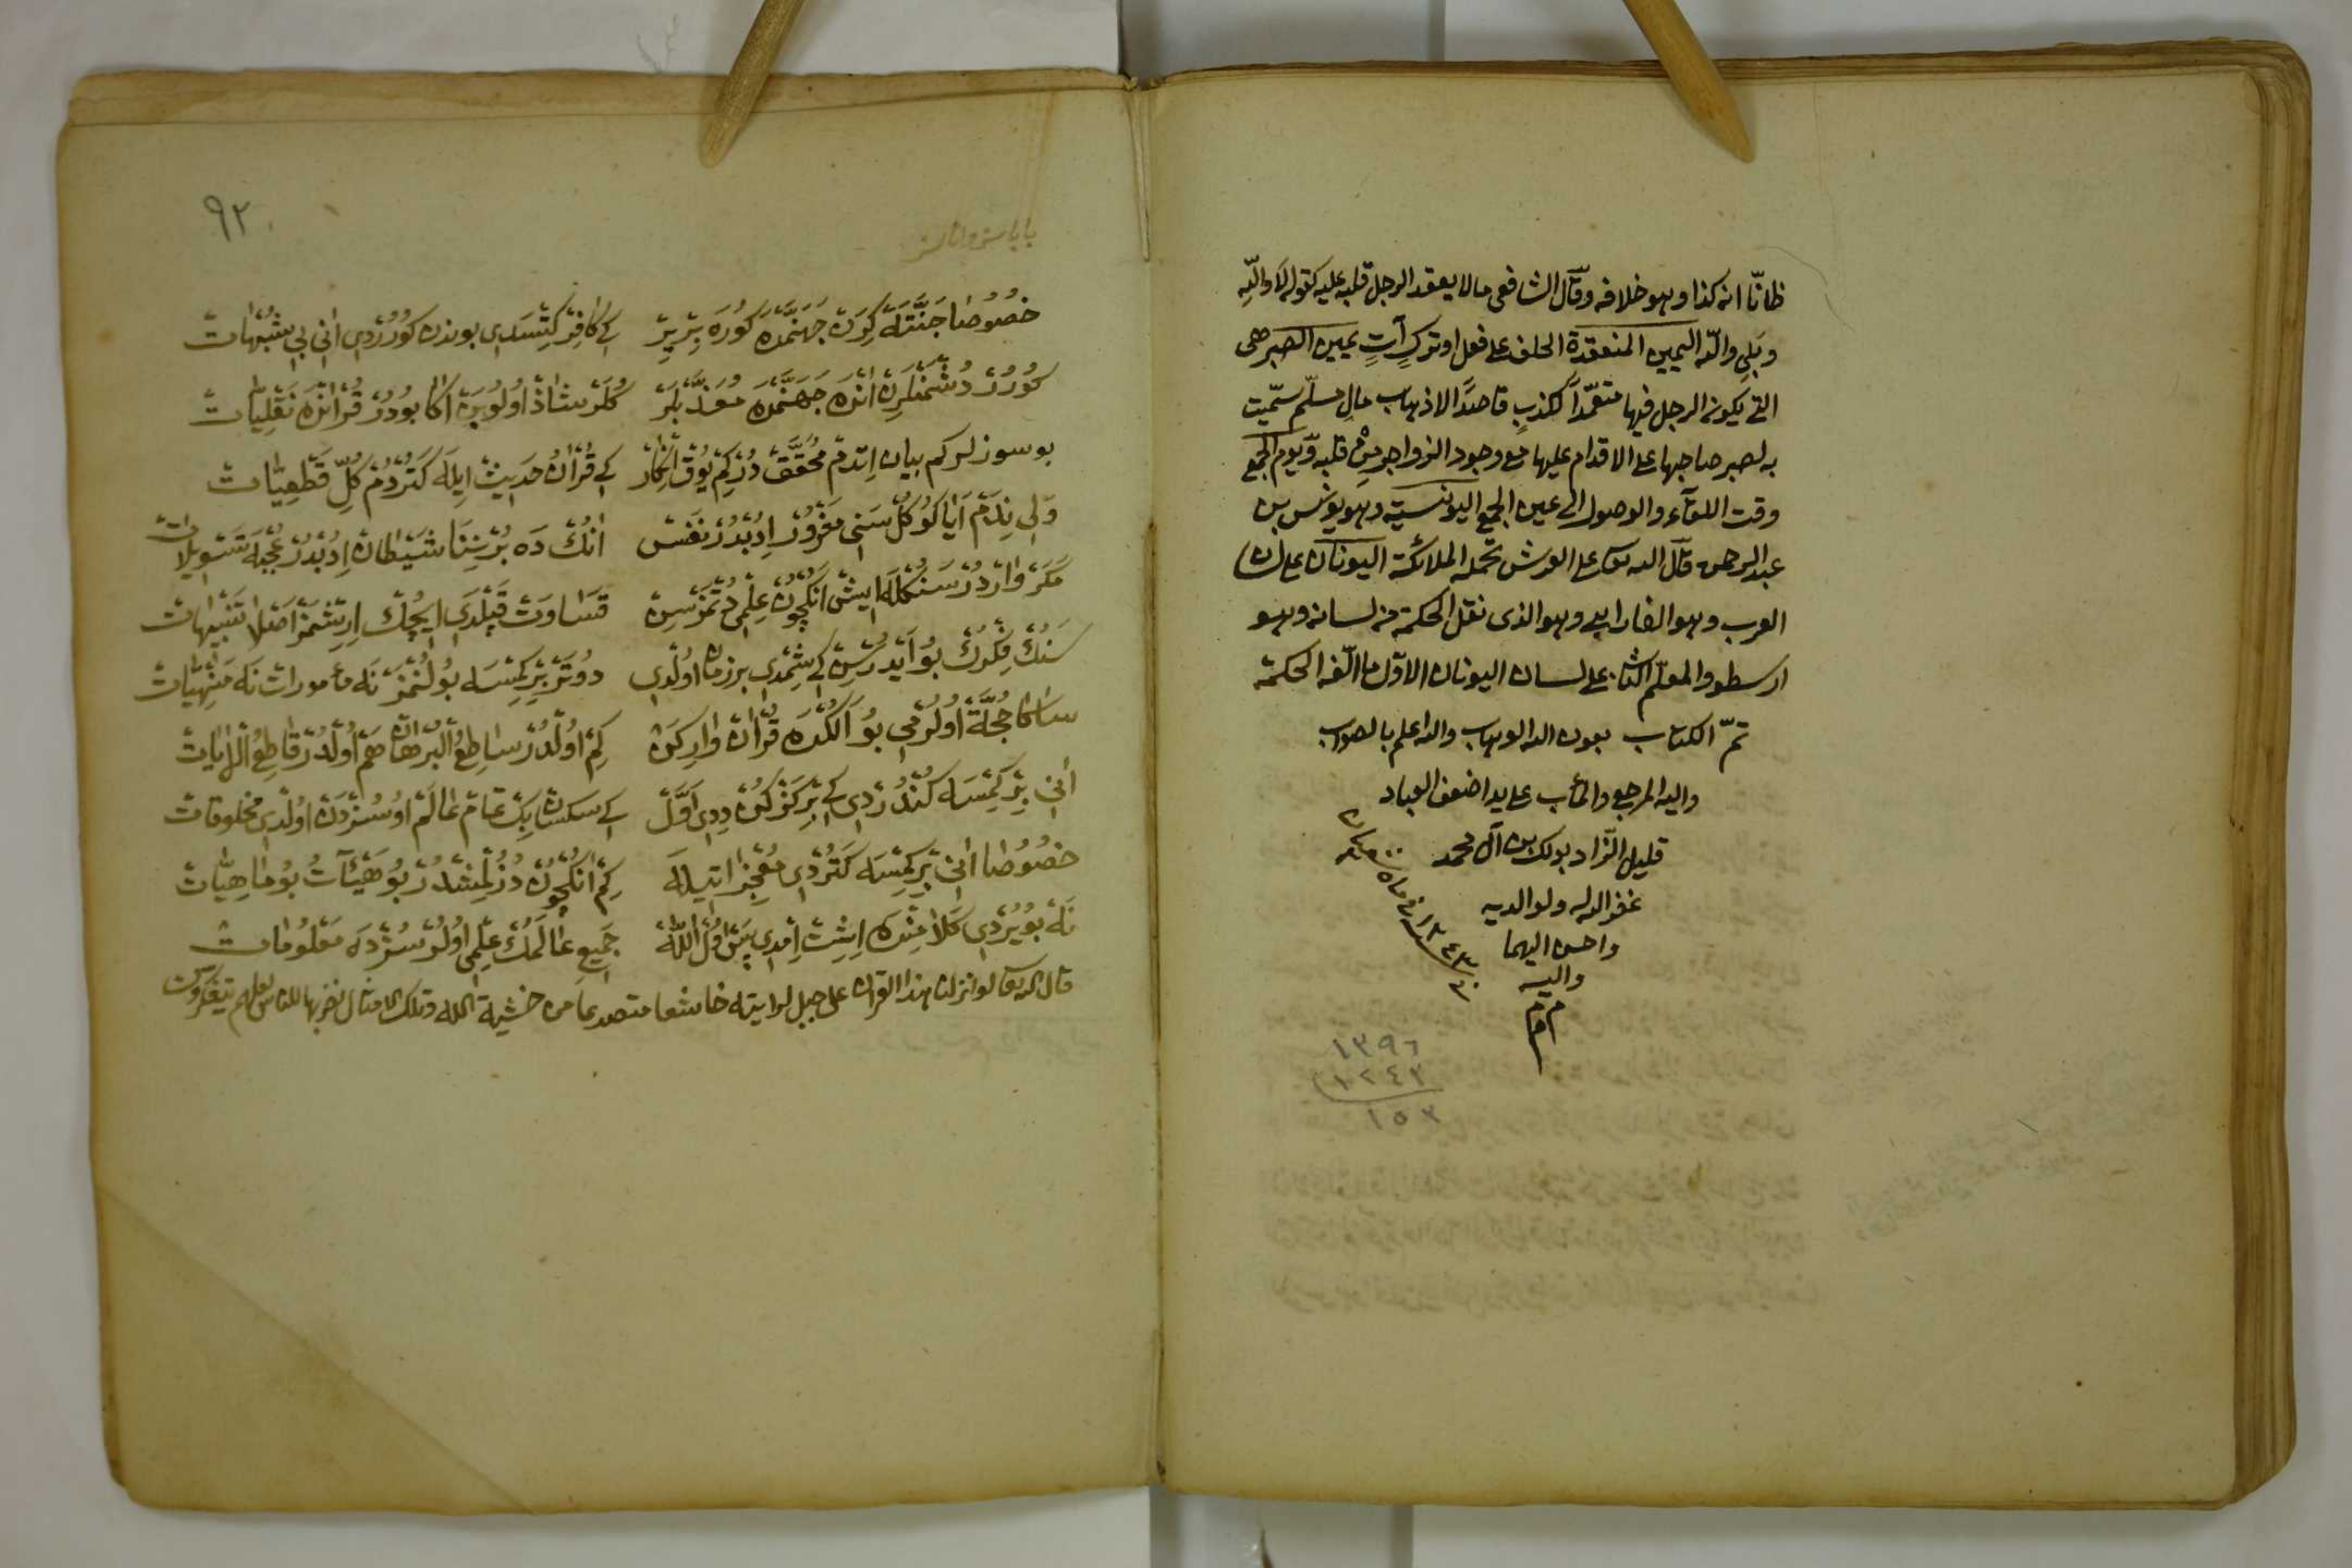 ظانّا انه كذا وهو خلافه وقال الشافعى ما لا يعقد الرجل قلبه عليه كقوله لا والله
وبلى والله اليمين المنعقدة الحلف على فعل او ترك آت يمين الصبر هى
التى يكون الرجل فيها متعمّدا لكذب قاصدًا لاذهاب مال مسلم سمّيت
به لصبر صاحبها على الاقدام عليها مع وجود الزواجر من قلبه يوم الجمع
وقت اللقاء والوصول الى عين الجمع اليونسية وهو يونس بن
عبد الرحمن قال الله تعالى على العرش تحمله الملائكة اليونان على لسان
العرب وهو الفارابى وهو الذى نقل الحكمة من لسانه وهو
ارسطو والمعلّم الثانى على لسان اليونان الاوّل ما الّفه الحكمة
تمّ الكتاب بعون الله الوهاب والله اعلم بالصواب
واليه المرجع والمآب على يد اضعف العباد
قليل الزاد بولك بن آل محمد
غفر الله له ولوالديه
واحسن اليهما
واليه
م م م
١٢٤٣
١٣٩٦
١٢٤٣
١٥٣
٩٢
خصوصا جنتله كرن جهنمده كوره بربر كه كافر كتسدى بوندن كورردى انى بى شبهات
كورر دشمنلرن انده جهنمده معذبلر كلر شاذ اولوبن اكا بودر قرانده نقليات
بو سوزلر كم بيان اتدم محقق در كم يوق انكار كه قران حديث ايله كتردم كل قطعيات
ولى ندم ايا كوكل سنى مغرور ادبدر نفس انك ده برسنا شيطان ادبدر عجبله تسويلات
مكر واردر سنكله ايش انكچون علمى دتمزسن قساوت قپلدى ايچك ارشمز اصلا تنبيهات
سنك فكرك بو ايدرسن كه شمدى برزمان اولدى دوتر بر كمسه بولنمز نه مأمورات نه منهيات
ساكا حجة اولرمى بو الكده قران واركن كم اولدر ساطع البرهان هم اولدر قاطع الايات
انى بر كمسه كندردى كه بر كز كن ددى اول كه سكسان بيك تمام عالم اوسزدن اولدى مخلوقات
خصوصا انى بر كمسه كتردى معجزاتيله كم انكچون دزلمشدر بو هيئآت بو ماهيات
نه بويردى كلامنده اشت امدى بيق اول الله جميع عالمك علمى اولر سزده معلومات
قال الله تعالى لو انزلنا هذا القران على جبل لرايته خاشعا متصدعا من خشية الله وتلك الامثال نضربها للناس لعلهم يتفكرون